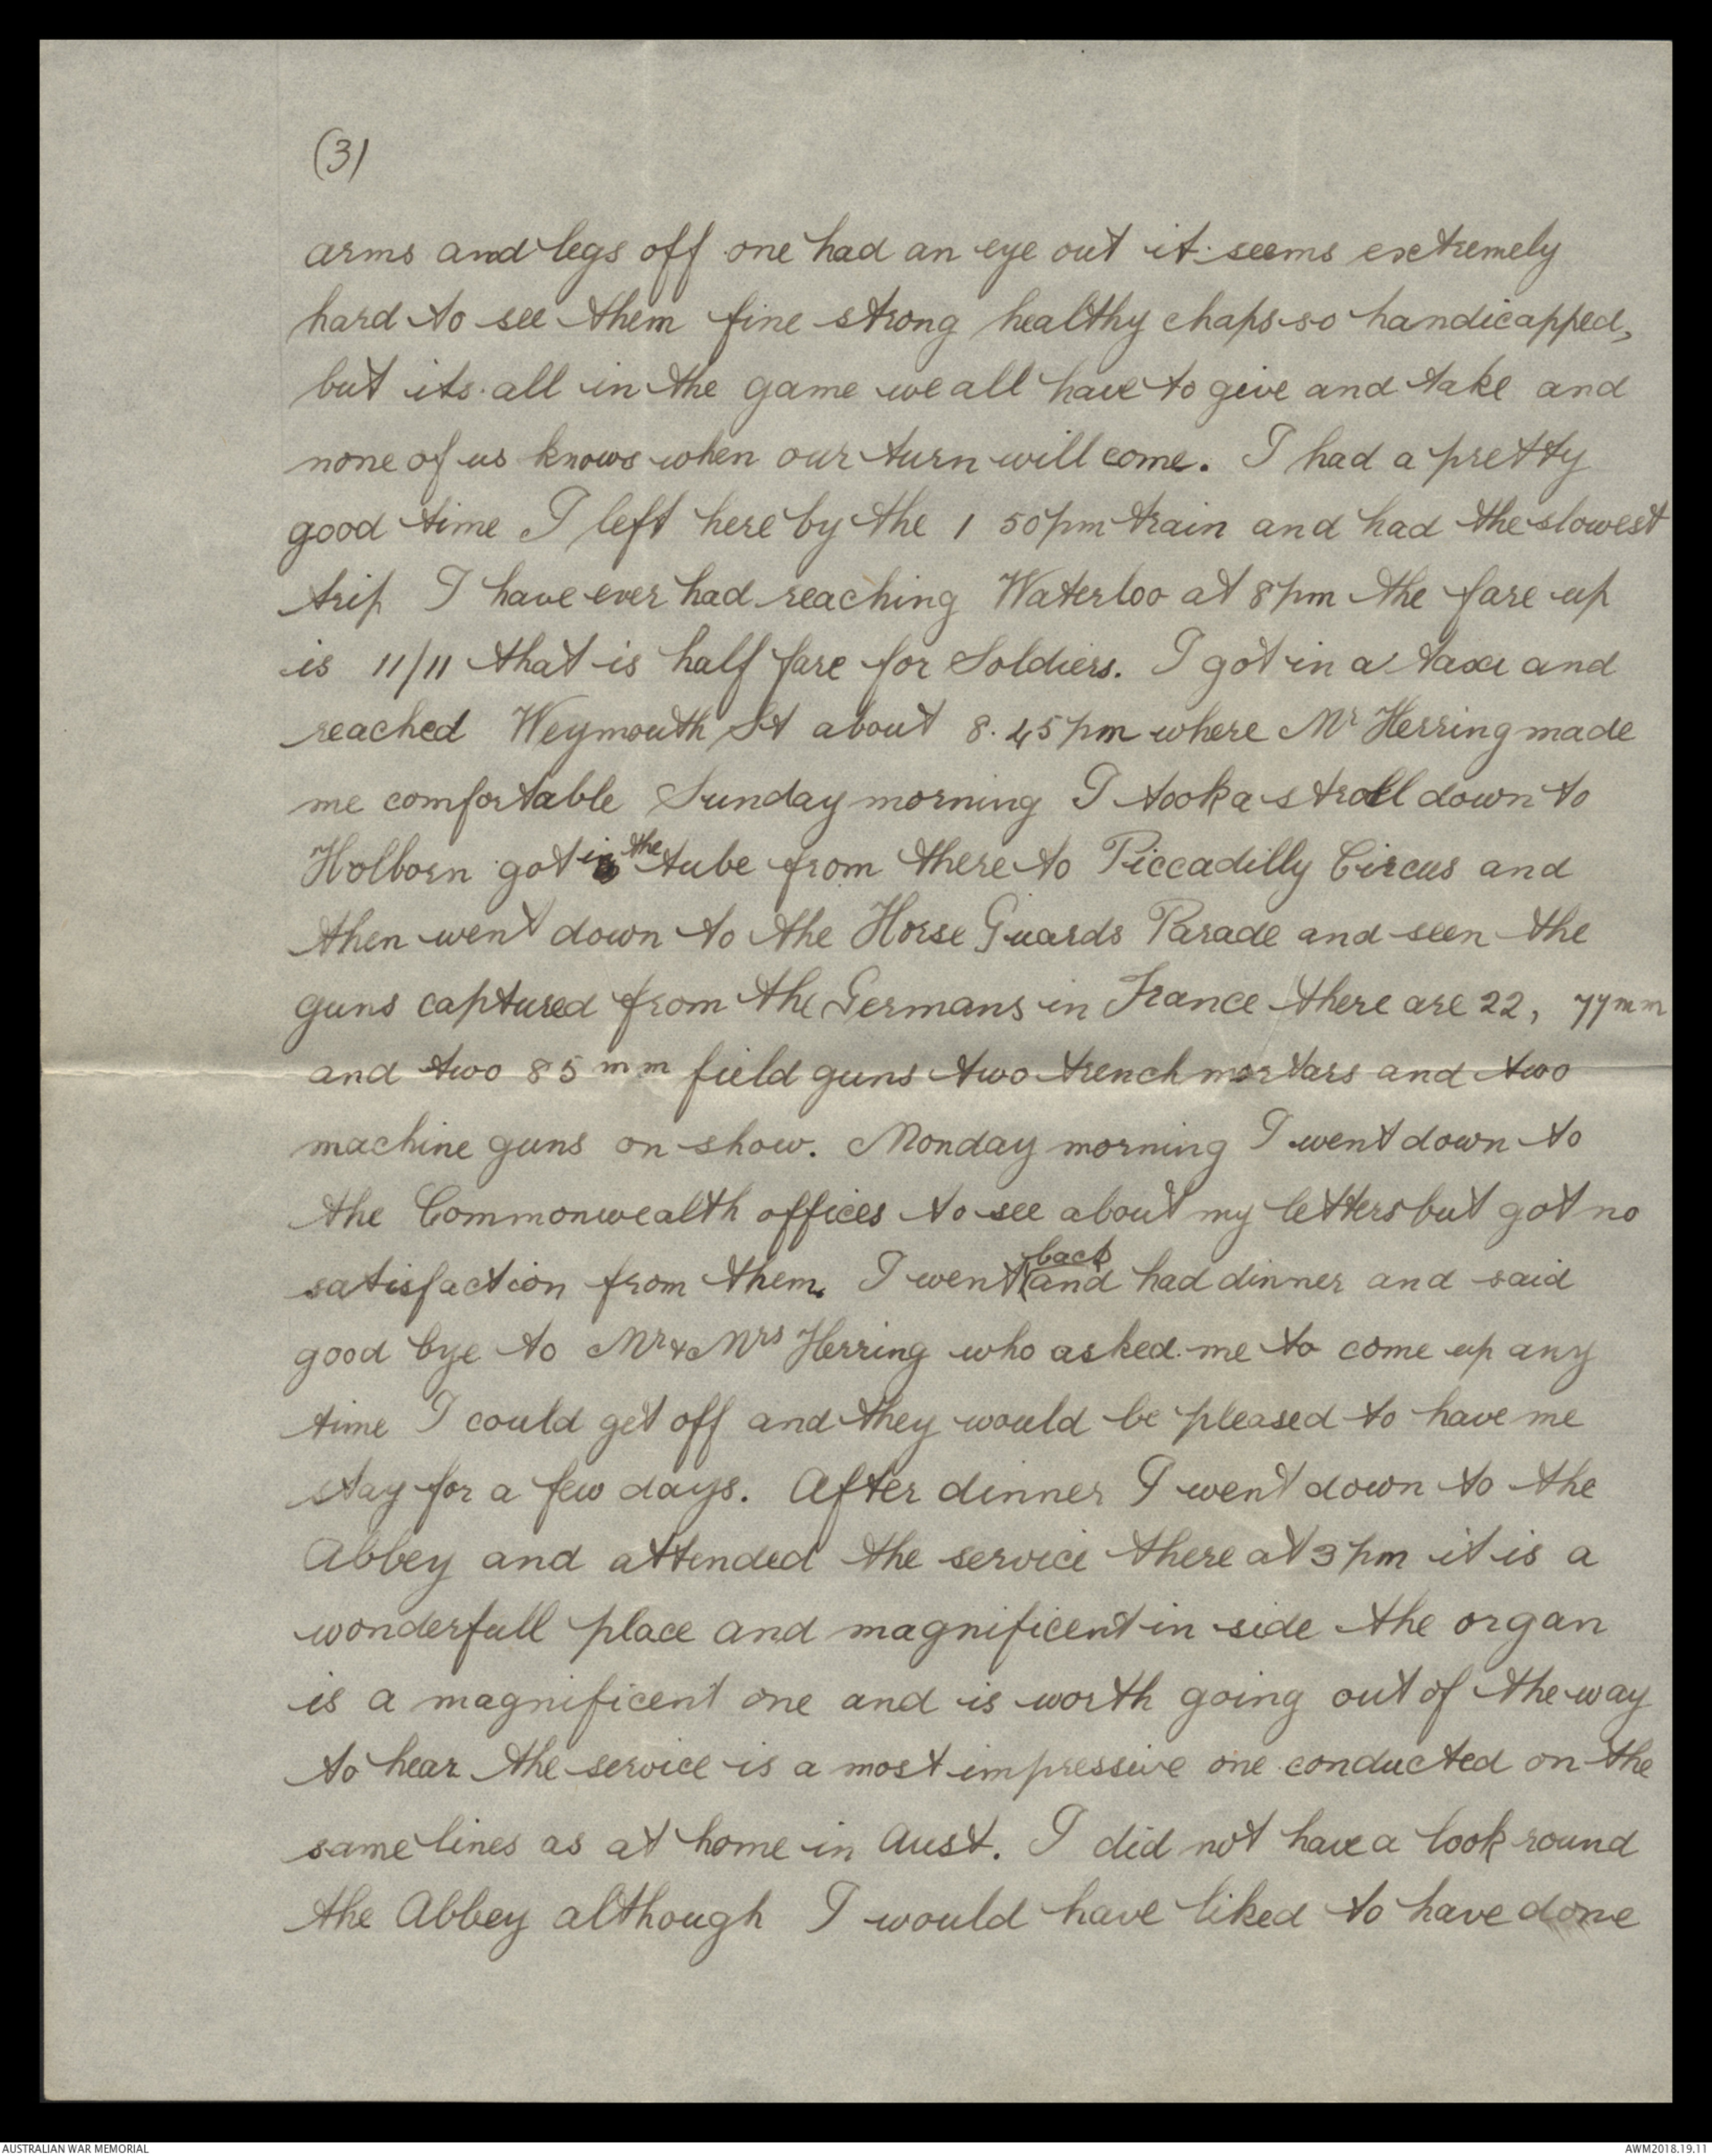 (3)
arms and legs off one had an eye out it seems extremely
hard to see them fine strong healthy chaps so handicapped,
but its all in the game we all have to give and take and
none of us knows when our turn will come. I had a pretty
good time I left here by the 1 50 pm train and had the slowest
trip I have ever had reaching Waterloo at 8 pm the fare up
is 11/11 that is half fare for Soldiers. I got in a taxi and
reached Weymouth St about 8.45 pm where Mr Herring made
me comfortable Sunday morning I took a stroll down to
Holborn got in the tube from there to Piccadilly Circus and
then went down to the Horse Guards Parade and seen the
guns captured from the Germans in France there are 22, 77 mm
and two 85 mm field guns two trench mortars and two
machine guns on show. Monday morning I went down to
the Commonwealth offices to see about my letters but got no
satisfaction from them. I went back and had dinner and said
good bye to Mr & Mrs Herring who asked me to come up any
time I could get off and they would be pleased to have me
stay for a few days. After dinner I went down to the
Abbey and attended the service there at 3 pm it is a
wonderfull place and magnificent in side the organ
is a magnificent one and is worth going out of the way
to hear the service is a most impressive one conducted on the
same lines as at home in Aust. I did not have a look round
the Abbey although I would have liked to have done
AUSTRALIAN WAR MEMORIAL
AWM2018.19.11